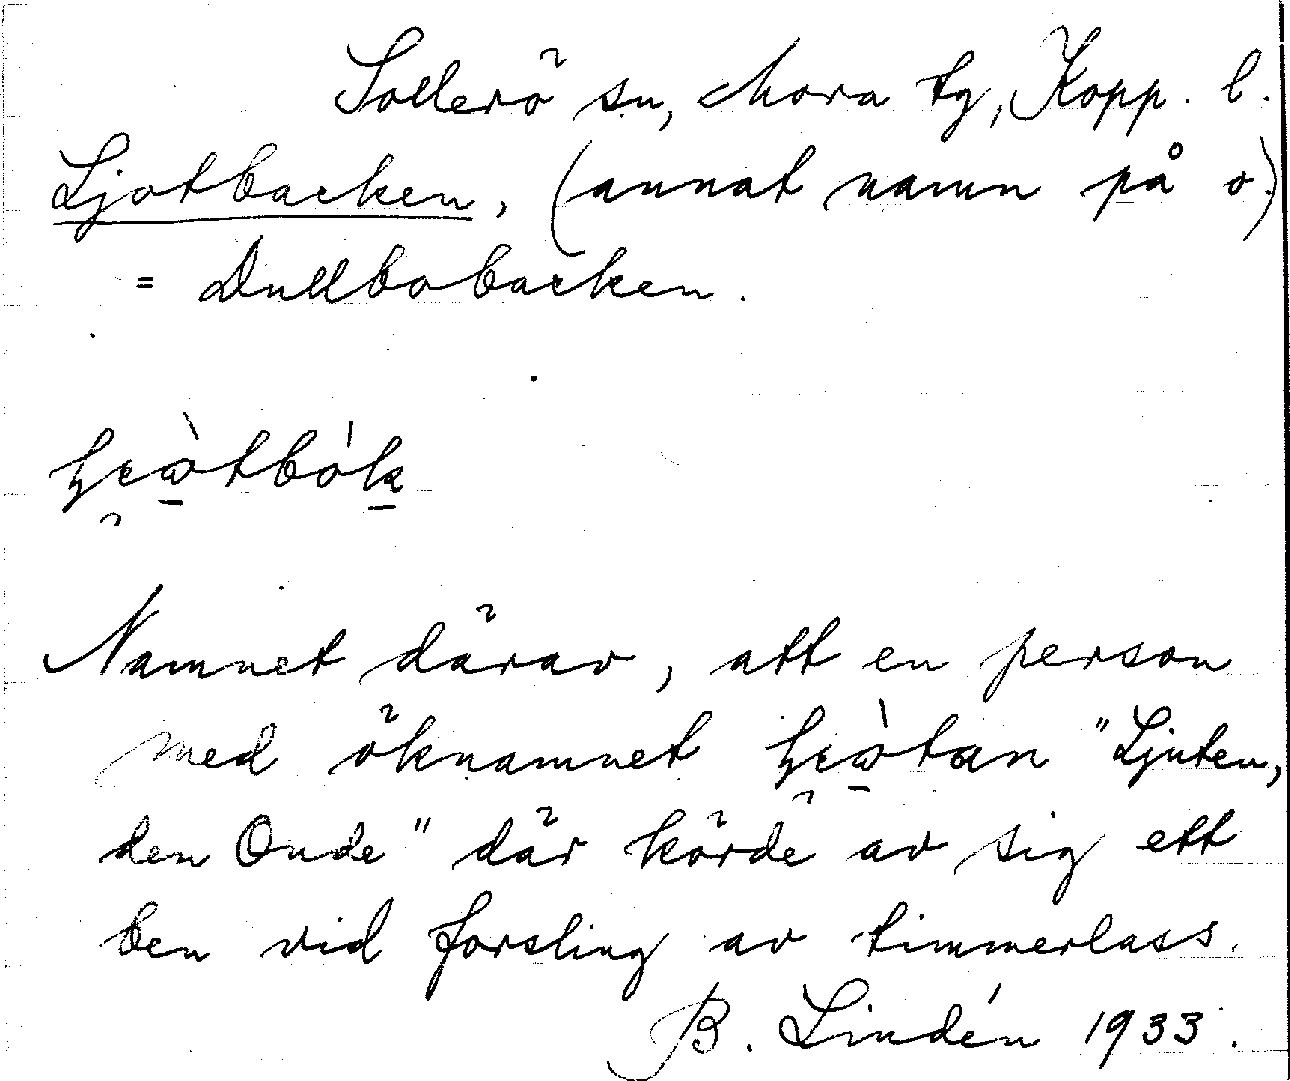 Sollerö sn, Mora tg, Kopp. l.
Ljotbacken, (annat namn på o.)
= Dullbobacken.
Namnet därav, att en person
med öknamnet "Ljuten,
den Onde" där körde av sig ett
ben vid forsling av timmerlass.
B. Lindén 1933.